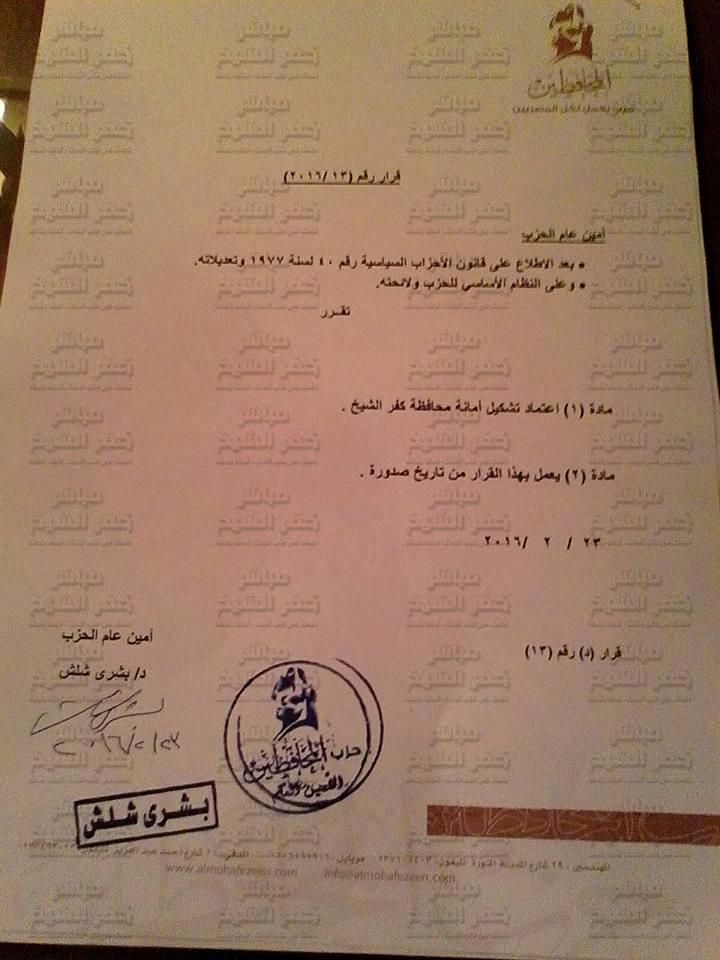 المحافظين
حزب يعمل لكل المصريين
قرار رقم (٢٠١٦/١٣)
أمين عام الحزب
• بعد الاطلاع على قانون الأحزاب السياسية رقم ٤٠ لسنة ١٩٧٧ وتعديلاته.
• وعلى النظام الأساسي للحزب ولائحته.
تقــرر
مادة (١) اعتماد تشكيل أمانة محافظة كفر الشيخ .
مادة (٢) يعمل بهذا القرار من تاريخ صدورة .
٢٣ / ٢ /٢٠١٦
أمين عام الحزب
د/ بشرى شلش
قرار (د) رقم (١٣)
٢٠١٦/٢/٢٣
حزب المحافظين
الأمين العام
بشرى شلش
المهندسين ، ٢٩ شارع المدينة المنورة تليفون
موبايل
الدقي
شارع احمد عبد العزيز تليفون
www.almohafezeen.com info@almohafezeen.com
مباشر
كفر الشيخ